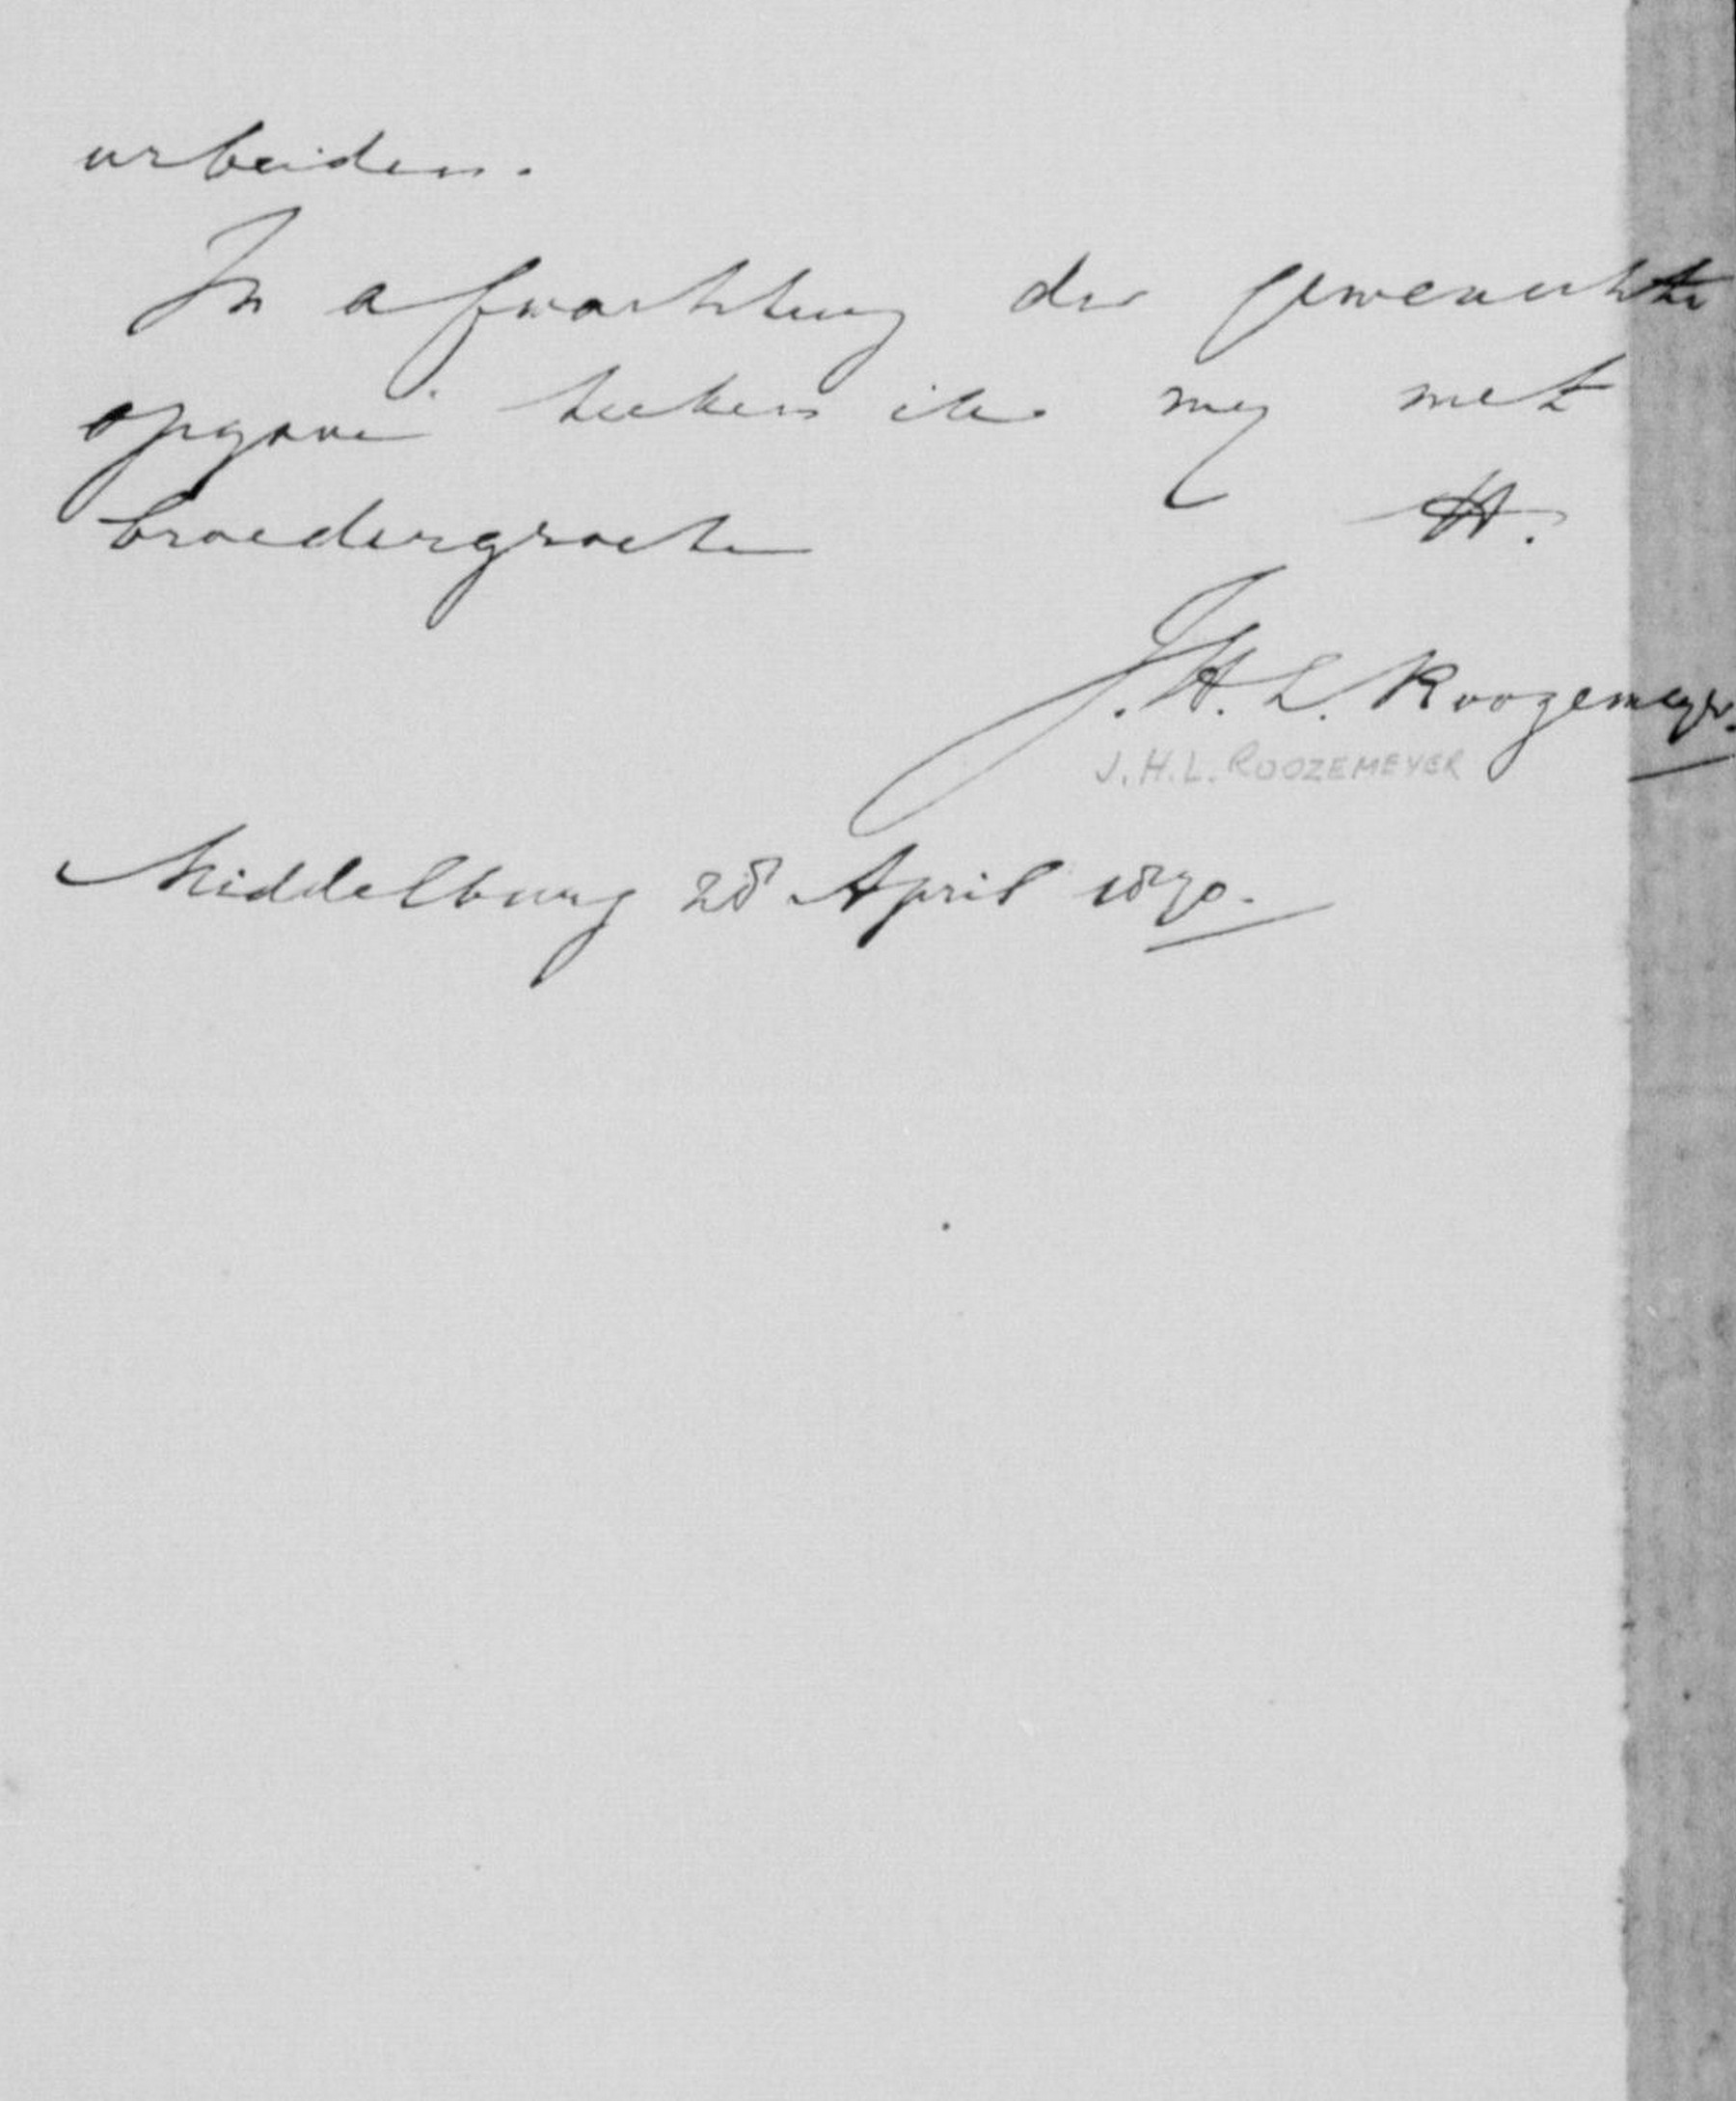 arbeiden.
In afwachting der gewenschte
opgave teeken ik my met
broedergroete
J. H. L. Roozemeyer.
J.H.L. ROOZEMEYER
Middelburg 28 April 1870.